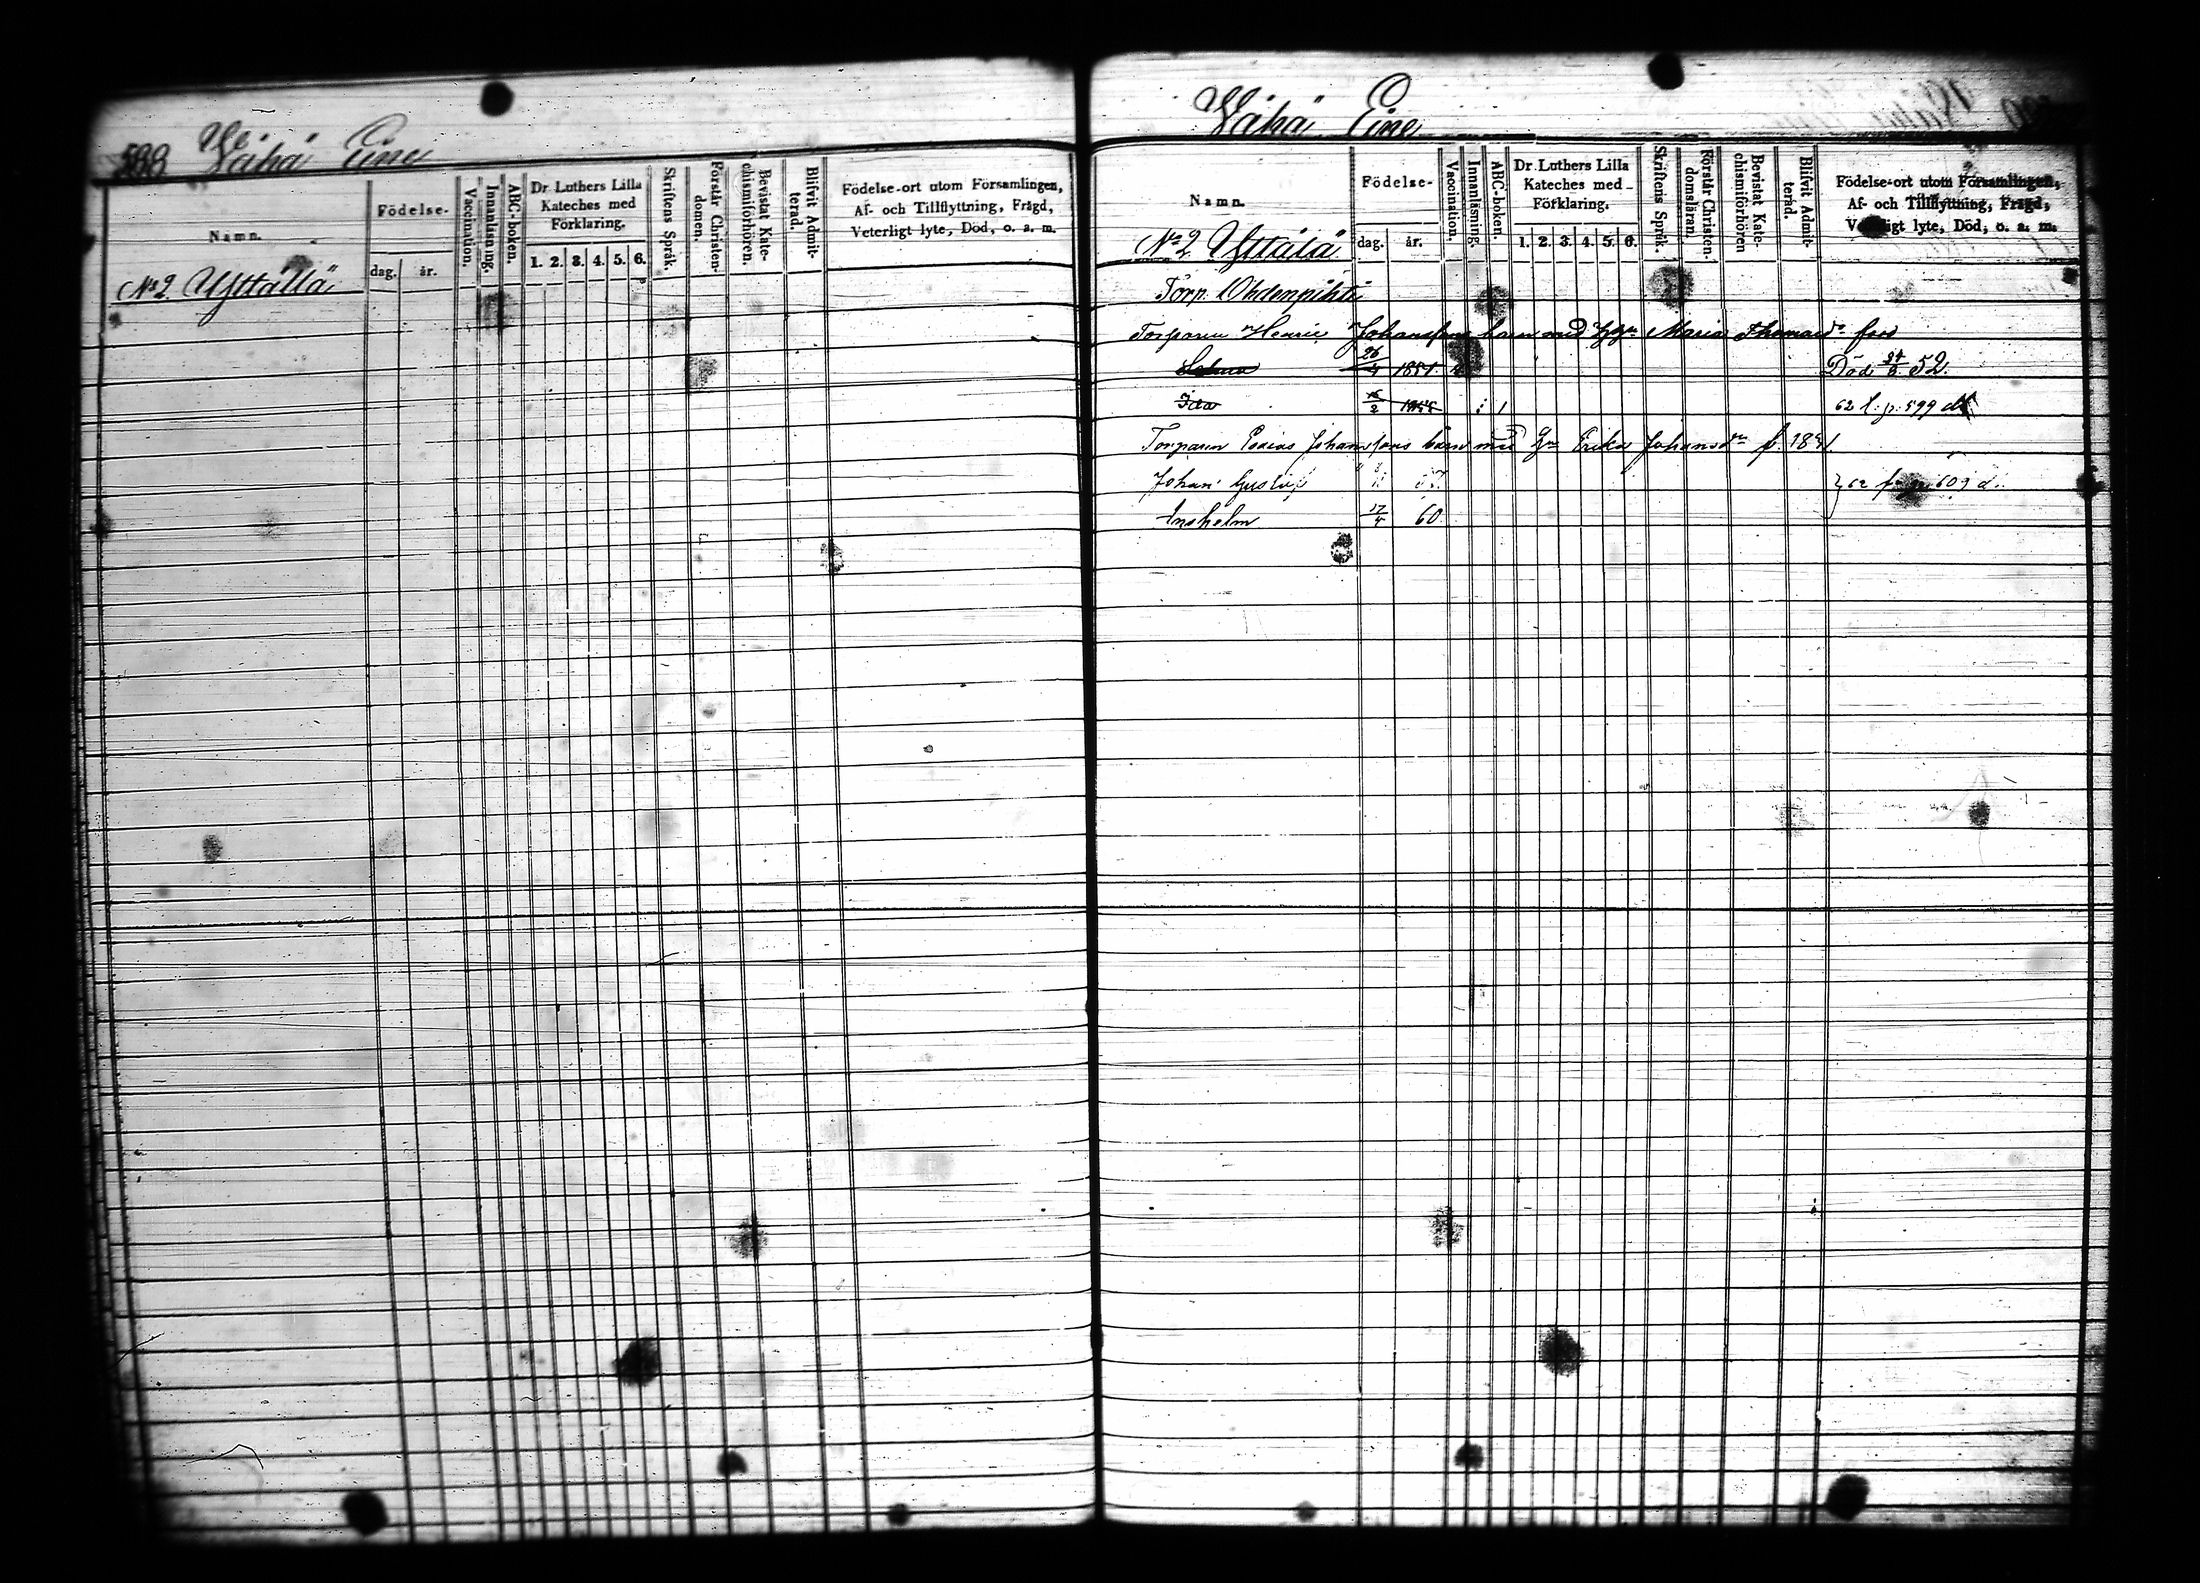 588 Wähä Eine
Namn.
Födelse-
dag. år.
Vaccination.
Innanläsning.
ABC-boken.
Dr Luthers Lilla Kateches med Förklaring.
1. 2. 3. 4. 5. 6.
Skriftens Språk.
Förstår Christendomen.
Bevistat Katechismiförhören.
Blifvit Admitterad.
Födelse-ort utom Församlingen,
Af- och Tillflyttning, Frägd,
Veterligt lyte, Död, o. s. m.
No 2 Yttälä
Wähä Eine
Namn.
Födelse-
dag. år.
Vaccination.
Innanläsning.
ABC-boken.
Dr Luthers Lilla Kateches med Förklaring.
1. 2. 3. 4. 5. 6.
Skriftens Språk.
Förstår Christendomsläran.
Bevistat Katechismiförhören
Blifvit Admitterad.
Födelse-ort utom Församlingen,
Af- och Tillflyttning, Frägd,
Veterligt lyte, Död, o. s. m.
No 2 Yttälä
Torp. Ohdenpihti
Torparen Henric Johanssons barn med Maria Thomasd:r
26/4 1851. Död 24/6 52.
Ida 15/2 62 l. p. 599
Torparen Esaias Johanssons barn med Erika Johansd:r f.
Johan Gustaf 62 609 d.
Anshelm 17/4 60